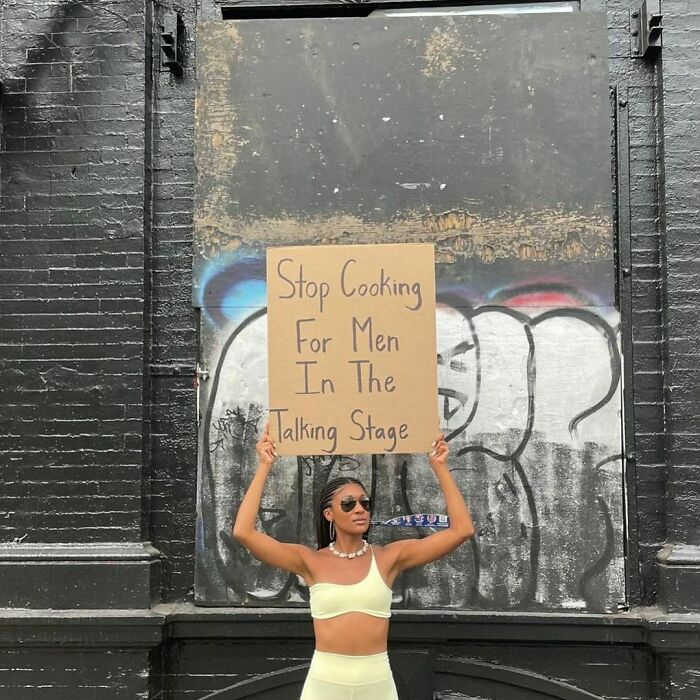 Stop Cooking
For Men
In The
Talking Stage